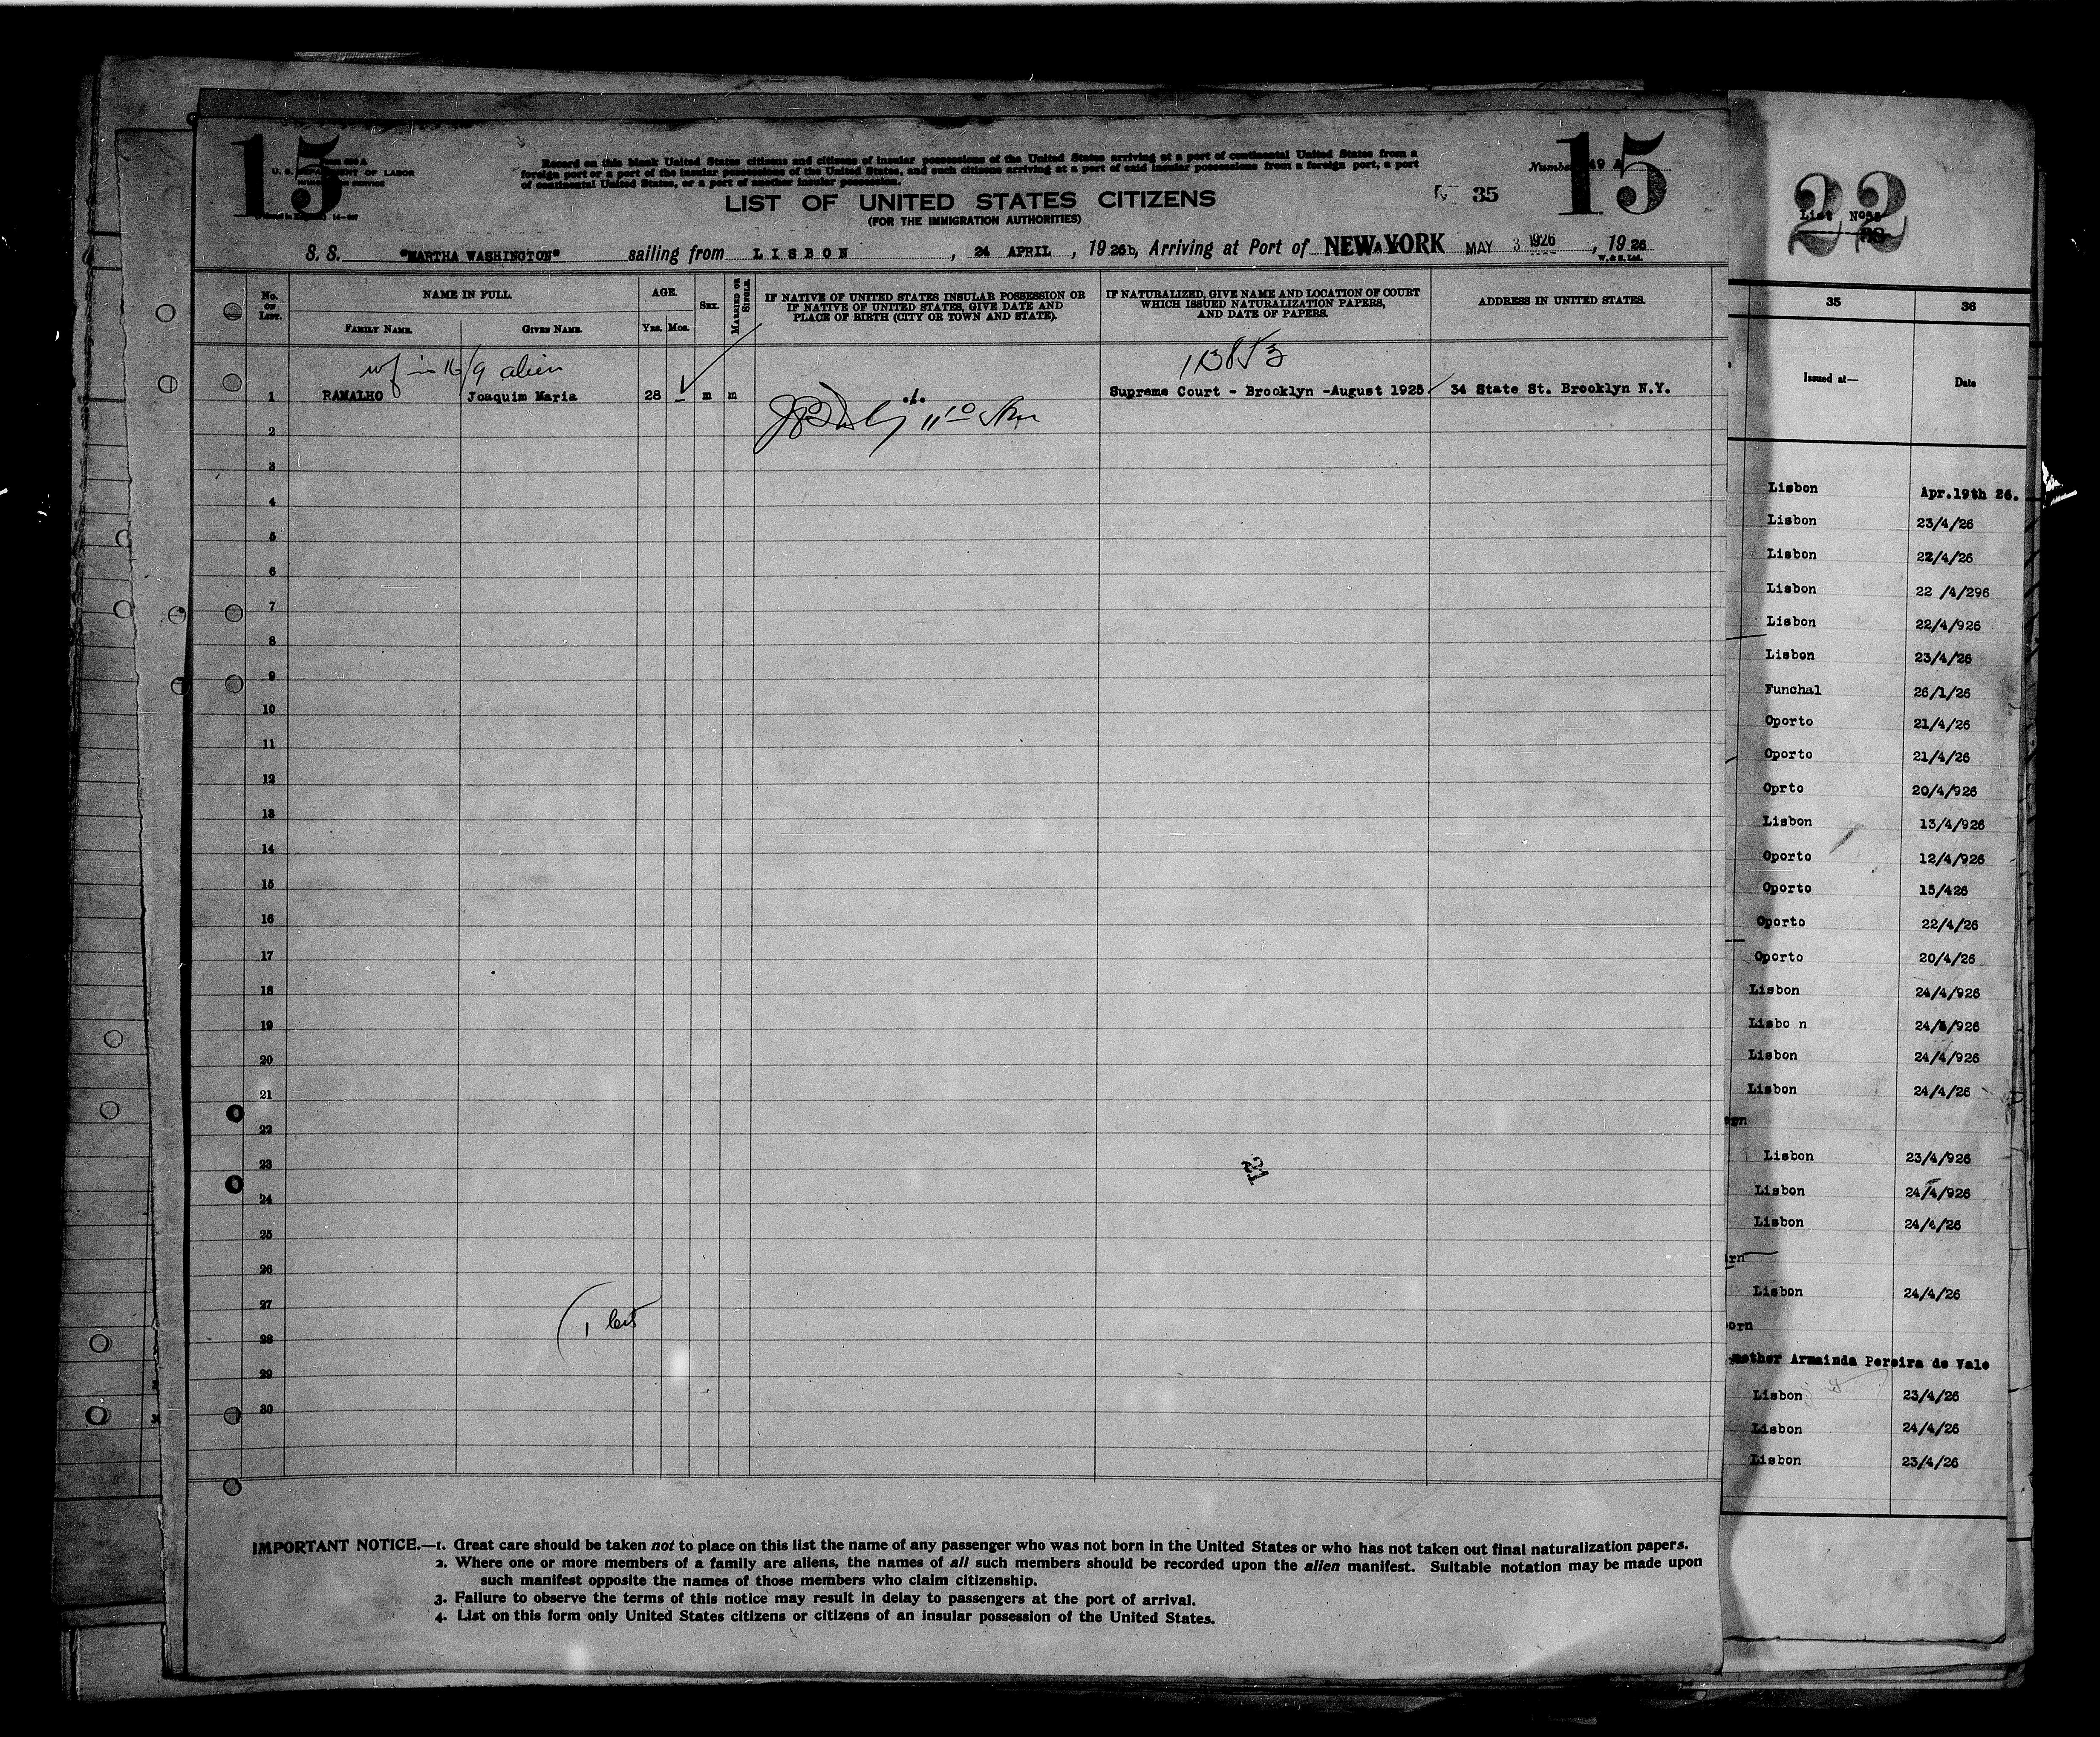 15
15
U. S. DEPARTMENT OF LABOR
Record on this blank United States citizens and citizens of insular possessions of the United States arriving at a port of continental United States from a
foreign port or a port of the insular possessions of the United States, and such citizens arriving at a port of said insular possessions from a foreign port, a port
of continental United States, or a port of another insular possession.
Number 49 A
35
LIST OF UNITED STATES CITIZENS
(FOR THE IMMIGRATION AUTHORITIES)
S. S. "MARTHA WASHINGTON" sailing from LISBON, 24 APRIL, 1926, Arriving at Port of NEW YORK MAY 3 1926, 1926
No. ON LIST.
NAME IN FULL.
FAMILY NAME.
GIVEN NAME.
AGE.
YRS.
MOS.
SEX.
MARRIED OR SINGLE.
IF NATIVE OF UNITED STATES INSULAR POSSESSION OR
IF NATIVE OF UNITED STATES, GIVE DATE AND
PLACE OF BIRTH (CITY OR TOWN AND STATE).
IF NATURALIZED, GIVE NAME AND LOCATION OF COURT
WHICH ISSUED NATURALIZATION PAPERS,
AND DATE OF PAPERS.
ADDRESS IN UNITED STATES.
wf in 16/9 alien
1 RAMALHO Joaquim Maria 28 - m m Supreme Court - Brooklyn -August 1925. 34 State St. Brooklyn N.Y.
2
3
4
5
6
7
8
9
10
11
12
13
14
15
16
17
18
19
20
21
22
23
24
25
26
27
28
29
30
21
IMPORTANT NOTICE.—1. Great care should be taken not to place on this list the name of any passenger who was not born in the United States or who has not taken out final naturalization papers.
2. Where one or more members of a family are aliens, the names of all such members should be recorded upon the alien manifest. Suitable notation may be made upon
such manifest opposite the names of those members who claim citizenship.
3. Failure to observe the terms of this notice may result in delay to passengers at the port of arrival.
4. List on this form only United States citizens or citizens of an insular possession of the United States.
22
List No
35 36
Issued at— Date
Lisbon Apr.19th 26.
Lisbon 23/4/26
Lisbon 22/4/26
Lisbon 22 /4/296
Lisbon 22/4/926
Lisbon 23/4/26
Funchal 26/1/26
Oporto 21/4/26
Oporto 21/4/26
Oprto 20/4/926
Lisbon 13/4/926
Oporto 12/4/926
Oporto 15/426
Oporto 22/4/26
Oporto 20/4/26
Lisbon 24/4/926
Lisbo n 24/4/926
Lisbon 24/4/926
Lisbon 24/4/26
Lisbon 23/4/926
Lisbon 24/4/926
Lisbon 24/4/26
Lisbon 24/4/26
orn
mother Armainda Pereira de Vale
Lisbon 23/4/26
Lisbon 24/4/26
Lisbon 23/4/26